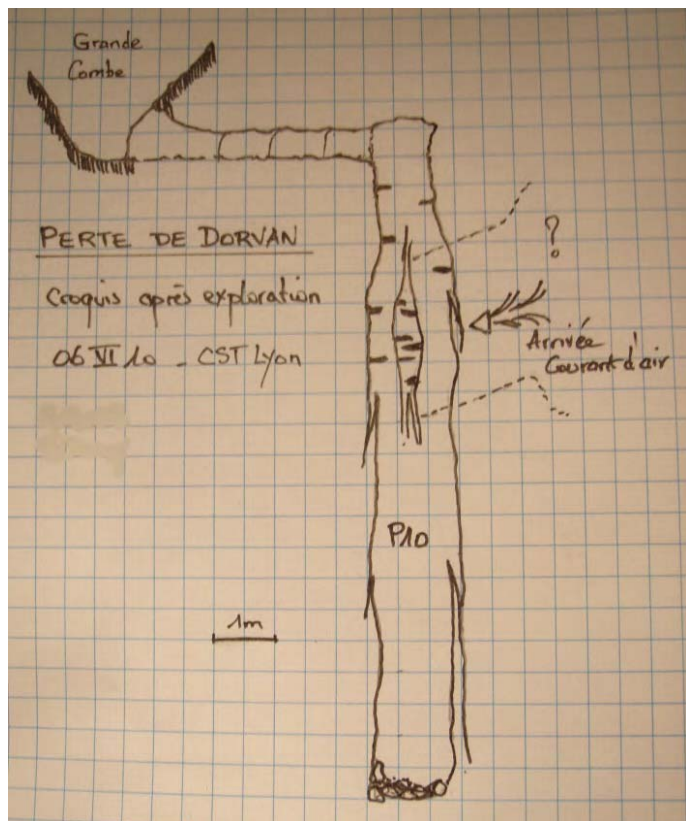 Grande
Combe
PERTE DE DORVAN
Croquis après exploration
06 VI 10 - CST Lyon
?
Arrivée
Courant d'air
P10
1m